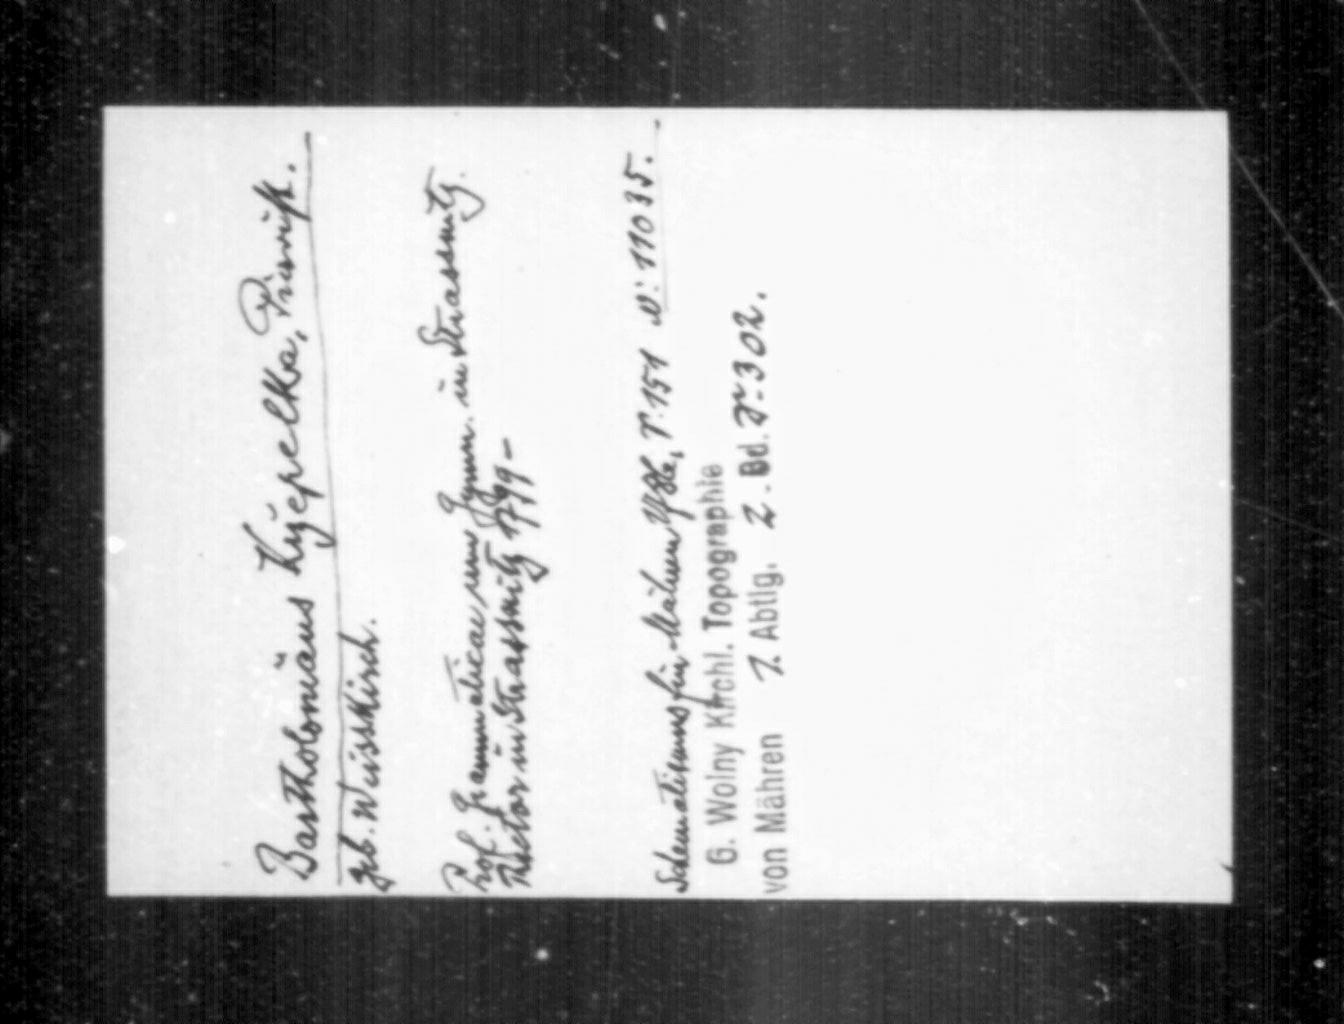 Bartholomäus Křepelka, Piarist.
geb. Weisskirch.
Prof. Grammaticae um Gymn. in Strassnitz.
Rector in Strassnitz 1799-
Schematismus für Mähren P. 151 N: 11035.
G. Wolny Kirchl. Topographie
von Mähren 1. Abtlg. 2. Bd. P. 302.